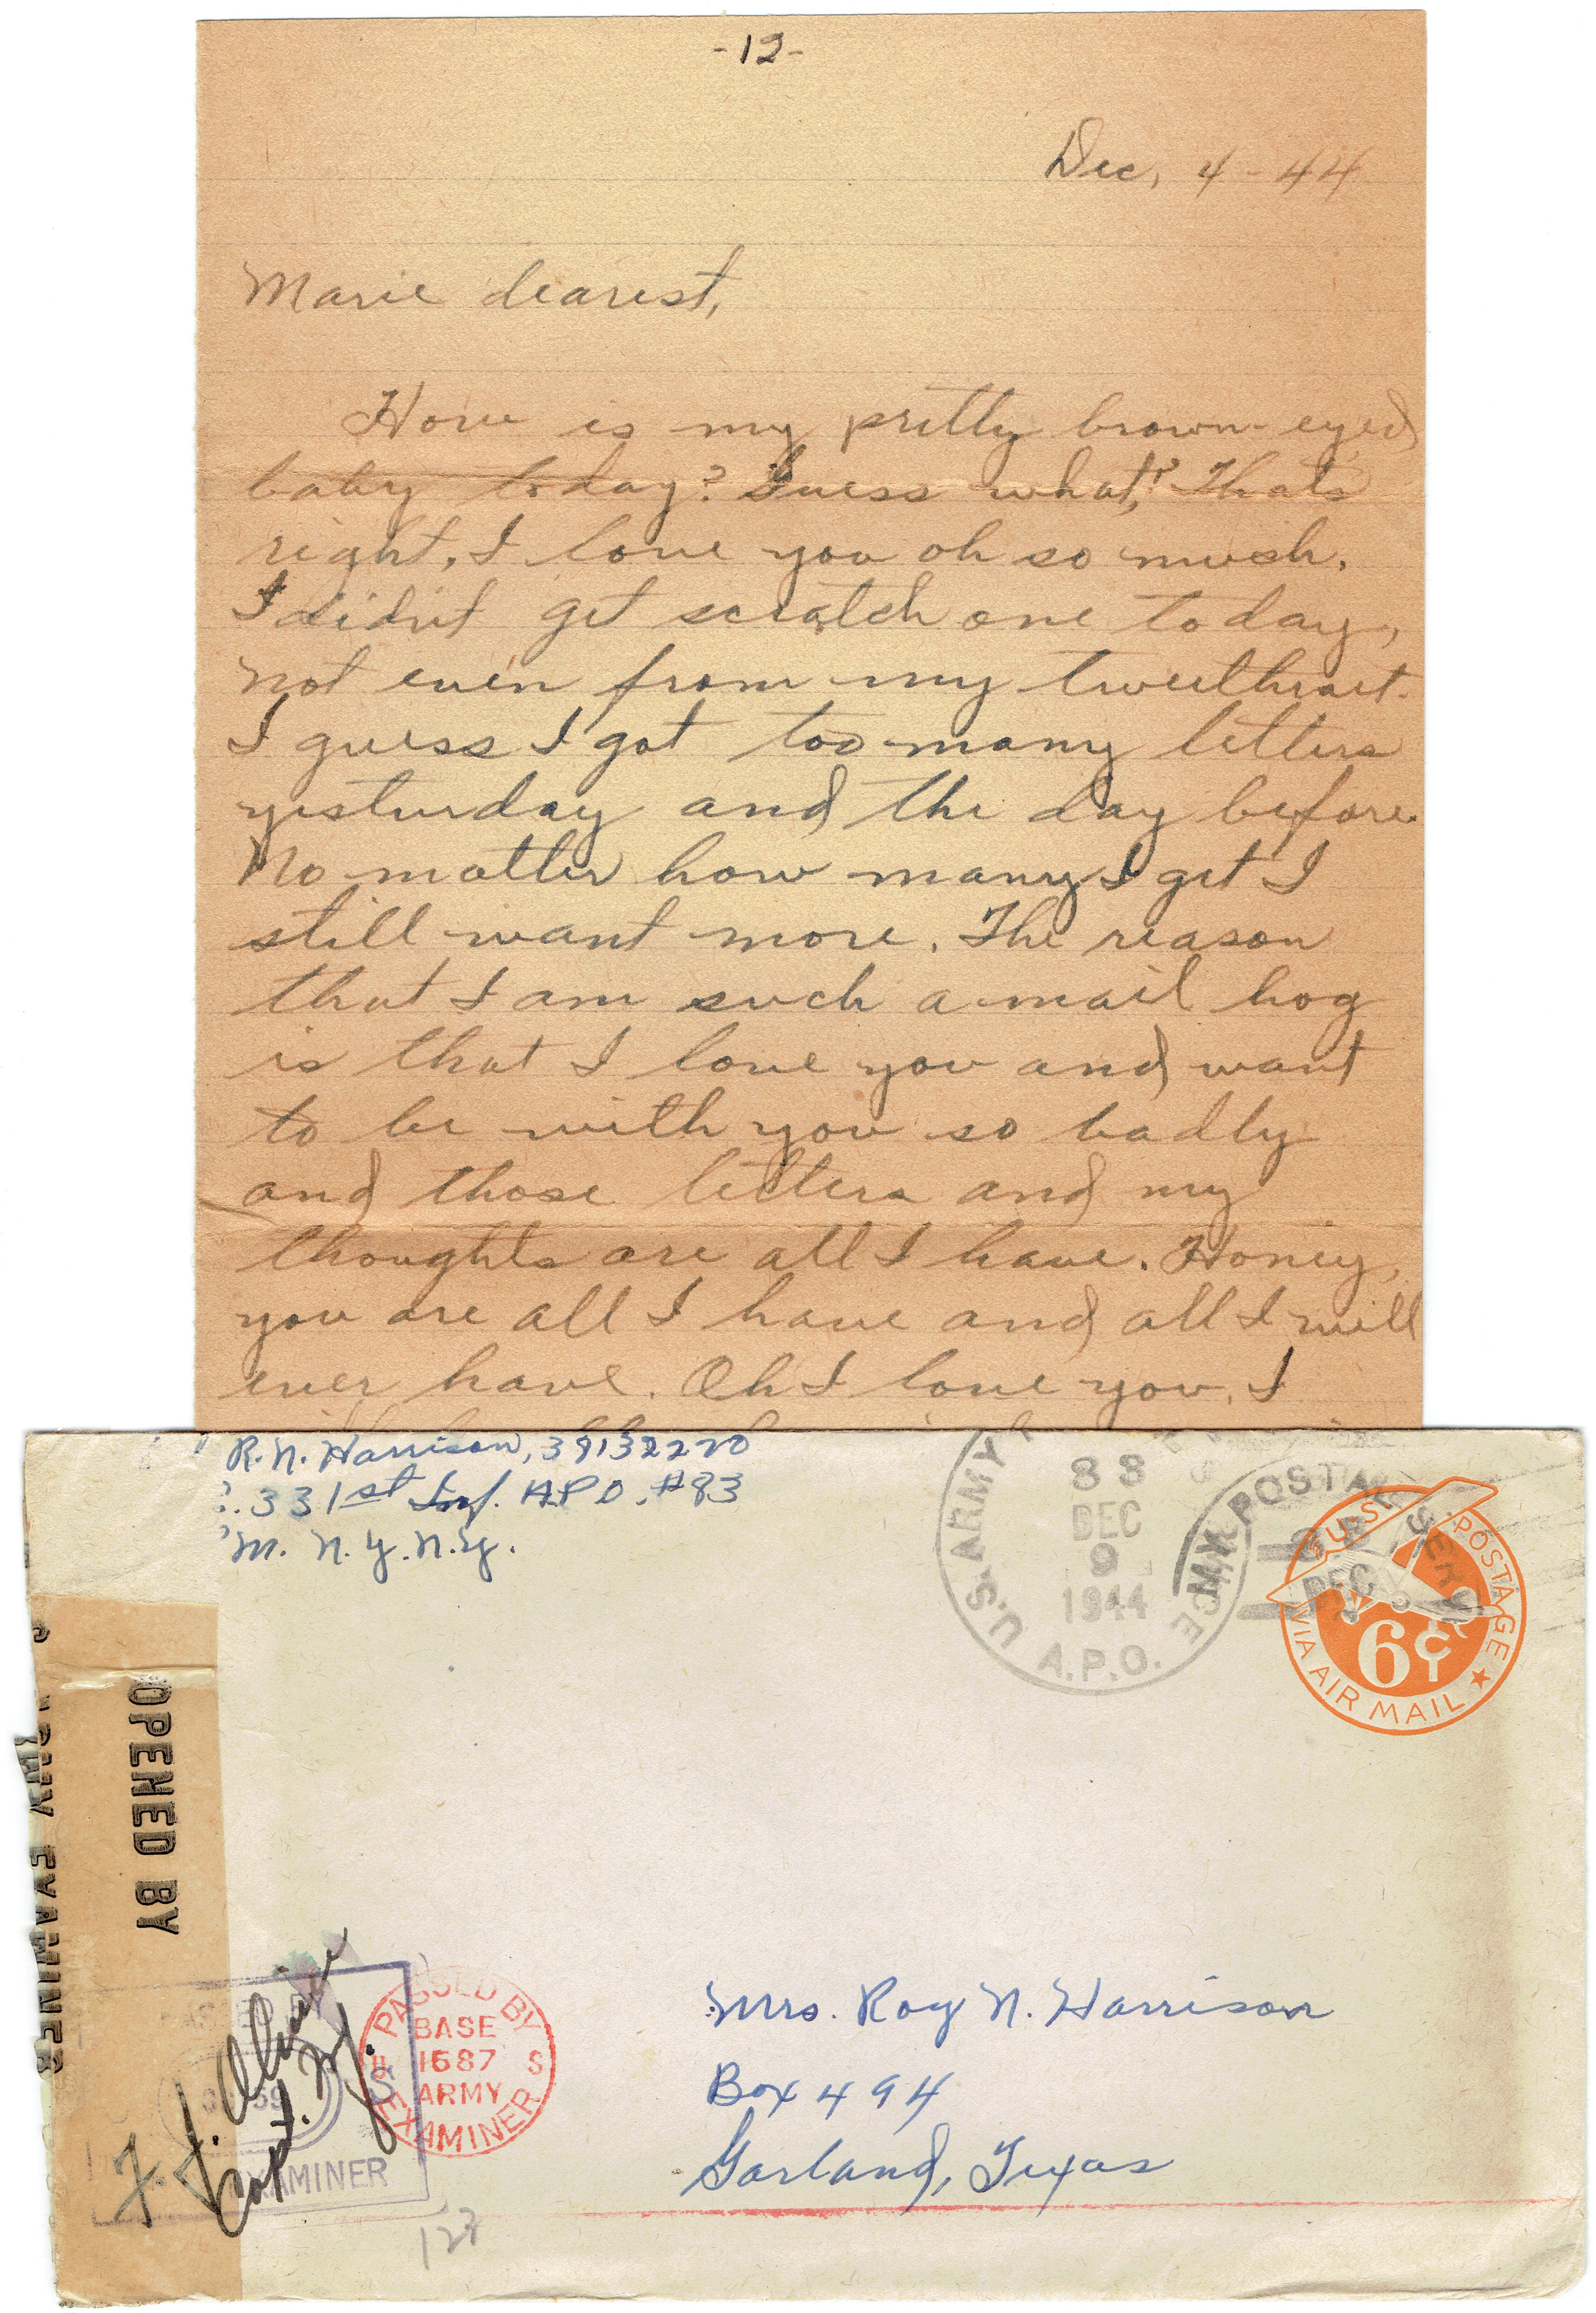 -12-
Dec, 4-44
Marie dearest,
How is my pretty brown-eyed
baby today? Guess what? Thats
right, I love you oh so much.
I didn't get scratch one today,
not even from my tweethart.
I guess I got too many letters
yesturday and the day before.
No matter how many I get I
still want more. The reason
that I am such a mail hog
is that I love you and want
to be with you so badly
and those letters and my
thoughts are all I have. Honey,
you are all I have and all I will
ever have. Oh I love you. I
R.N. Harrison, 39132220
331st Inf. A.P.O. #83
M. N.Y. N.Y.
U.S. ARMY
A.P.O.
83
DEC
9
1944
POSTAL
DEC
U.S. POSTAGE
6¢
VIA AIR MAIL
OPENED BY
ARMY EXAMINER
Capt.
EXAMINER
PASSED BY
BASE
1687
ARMY
EXAMINER
U S
127
Mrs. Roy N. Harrison
Box 494
Garland, Texas